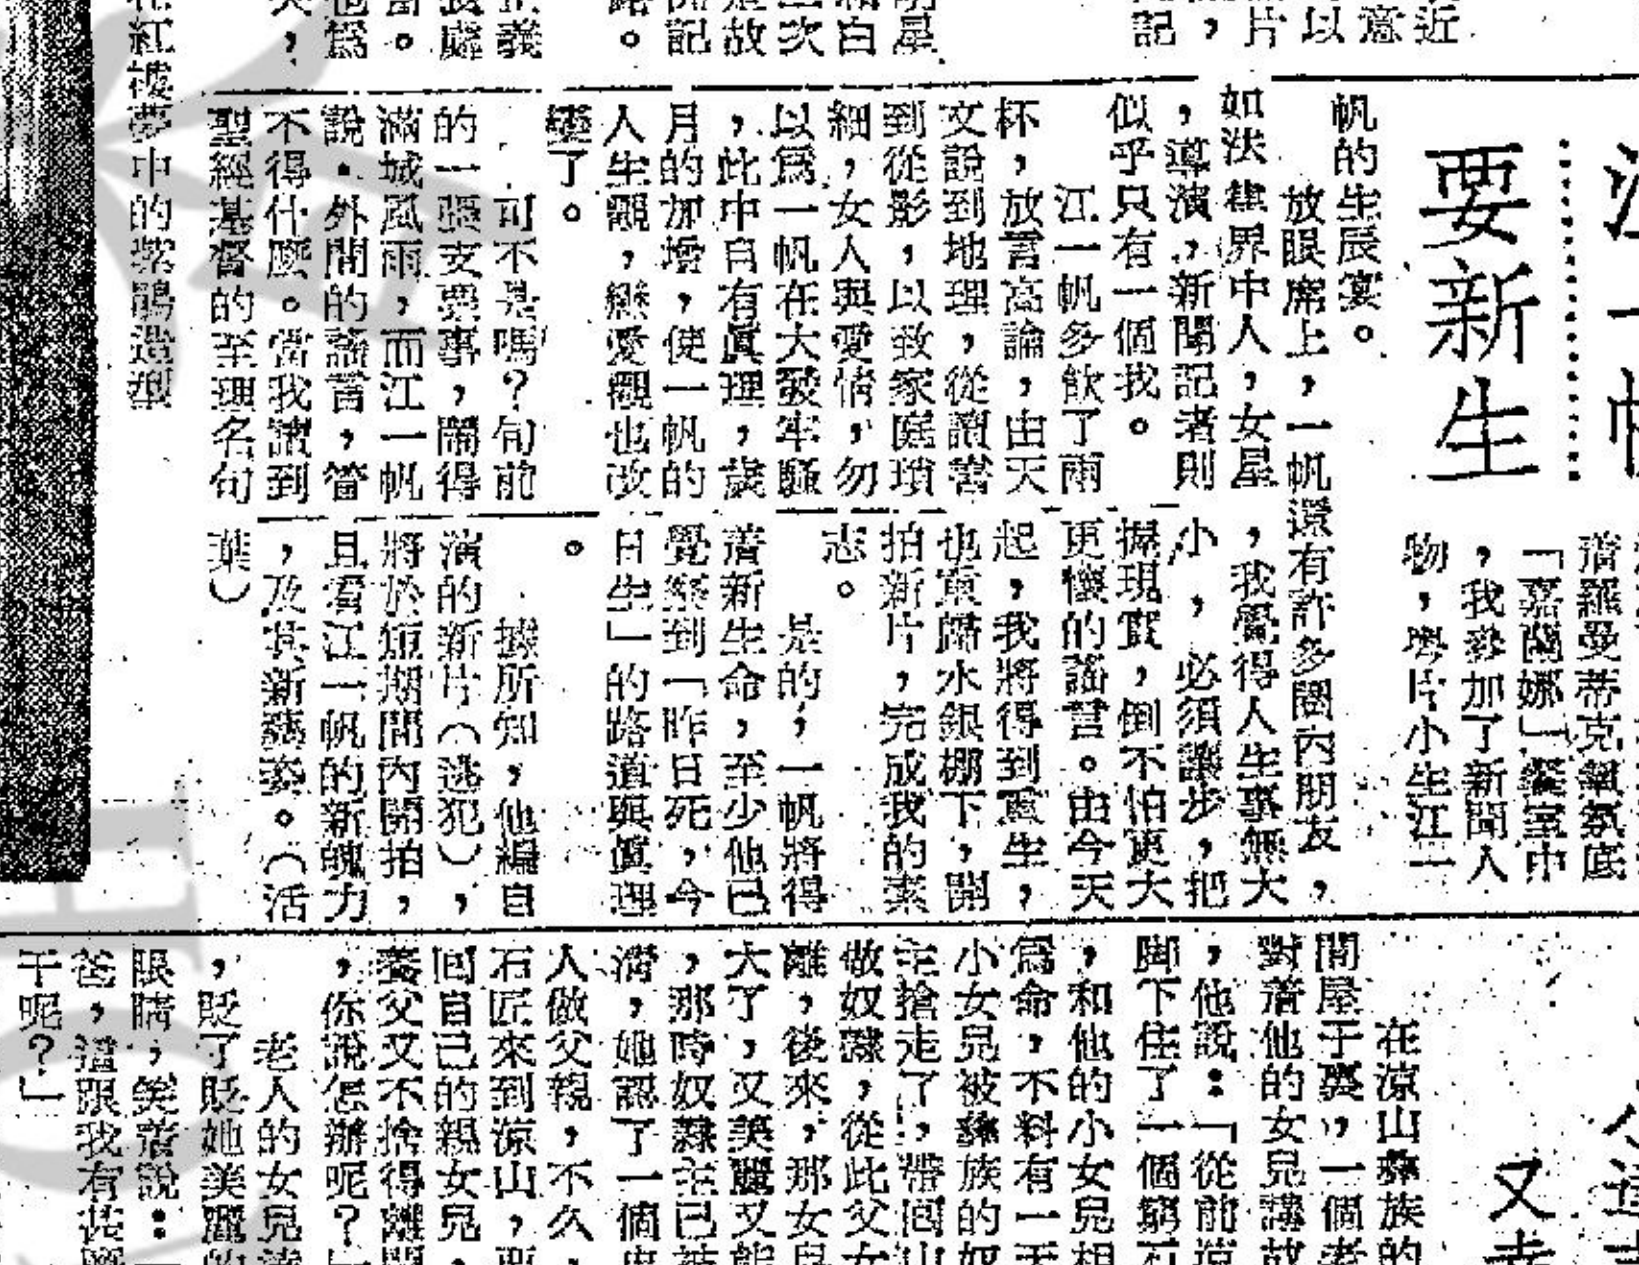 江一帆
要新生
着羅曼蒂克氣氛底
「嘉蘭娜」餐室中
，我參加了新聞人
物，粵片小生江一
帆的生辰宴。
放眼席上，一帆還有許多圈內朋友，
如法律界中人，女星
，導演，新聞記者則
似乎只有一個我。
江一帆多飲了兩
杯，放言高論，由天
文說到地理，從讀書
到從影，以致家庭瑣
細，女人與愛情，勿
以爲一帆在大發牢騷
，此中自有眞理，歲
月的加增，使一帆的
人生觀，戀愛觀也改
變了。
可不是嗎？旬前
的一張支票事，鬧得
滿城風雨，而江一帆
說：外間的謠言，管
不得什麼。當我讀到
聖經基督的至理名句
，我覺得人生事無大
小，必須讓步，把
握現實，倒不怕更大
更壞的謠言。由今天
起，我將得到重生，
也東踏水銀棚下，開
拍新片，完成我的素
志。
是的，一帆將得
着新生命，至少他已
覺察到「昨日死，今
日生」的路道與眞理
。
據所知，他編自
演的新片（逃犯），
將於短期間內開拍，
且看江一帆的新魄力
，及其新藝姿。（活
葉）
紅樓夢中的紫鵑造型
又幸
在涼山彝族的
間屋子裏，一個老
對着他的女兒講故
，他說：「從前涼
脚下住了一個窮石
，和他的小女兒相
爲命，不料有一天
小女兒被彝族的奴
主搶走了，帶囘山
做奴隸，從此父女
離，後來，那女兒
大了，又美麗又能
，那時奴隸主已被
淸，她認了一個
人做父親，不久，
石匠來到涼山，
囘自己的親女兒，
養父又不捨得離開
，你說怎辦呢？」
老人的女兒
，眨了眨她美麗的
眼睛，笑着說：
爸，這跟我有甚麼
干呢？」